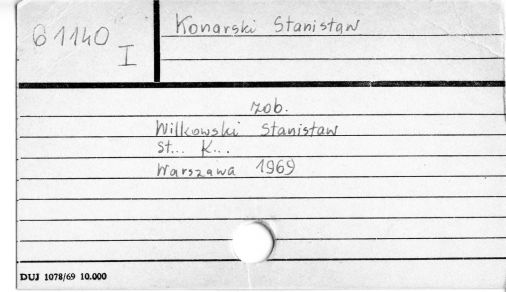 61140
I
Konarski Stanisław
zob.
Wilkowski Stanisław
St... K...
Warszawa 1969
DUJ 1078/69 10.000